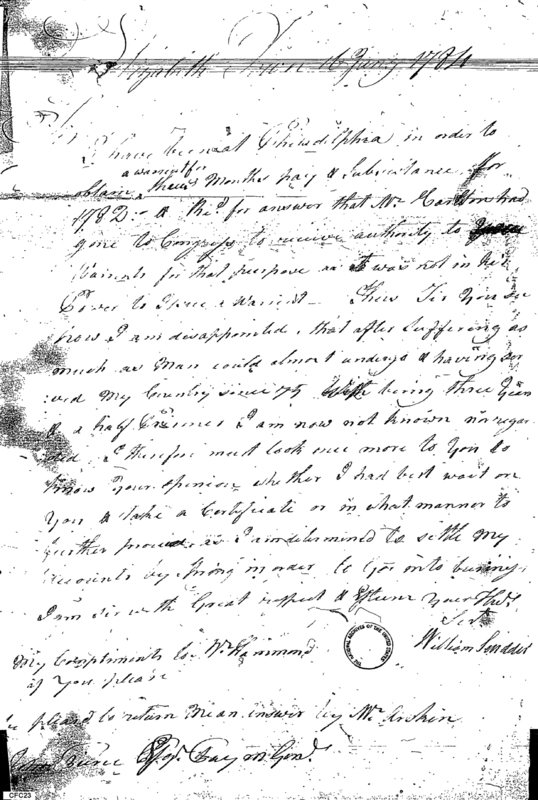 Elizabeth Town 16 Jany 1784
Sir
I have been at Philadelphia in order to
a warrant for
obtain three Months pay & Subsistance for
1782 - & Recd for answer that Mr Carlton had
gone to Congress to receive authority to
Warrants for that purpose as it was not in his
Power to Issue a Warrent - Thus Sir You see
how I am disappointed, that after Suffering as
much as Man could almost undergo & having ser
ved My Country since 75 being three Years
& a half Prisoner I am now not known nor regar
ded. I therefore must look once more to You to
know Your opinion whether I had best wait on
You & take a Certificate or in what manner to
further proceed as I am determined to settle My
accounts by
I am Sir with Great respect & Esteem Your Hbl
Sert
William Scudder
My Compliments to Mr Hammond
if You please
be pleasd to return Me an answer by Mr Erskin
John Pierce Esqr Pay m Genl
THE NATIONAL ARCHIVES OF THE UNITED STATES
CFC23